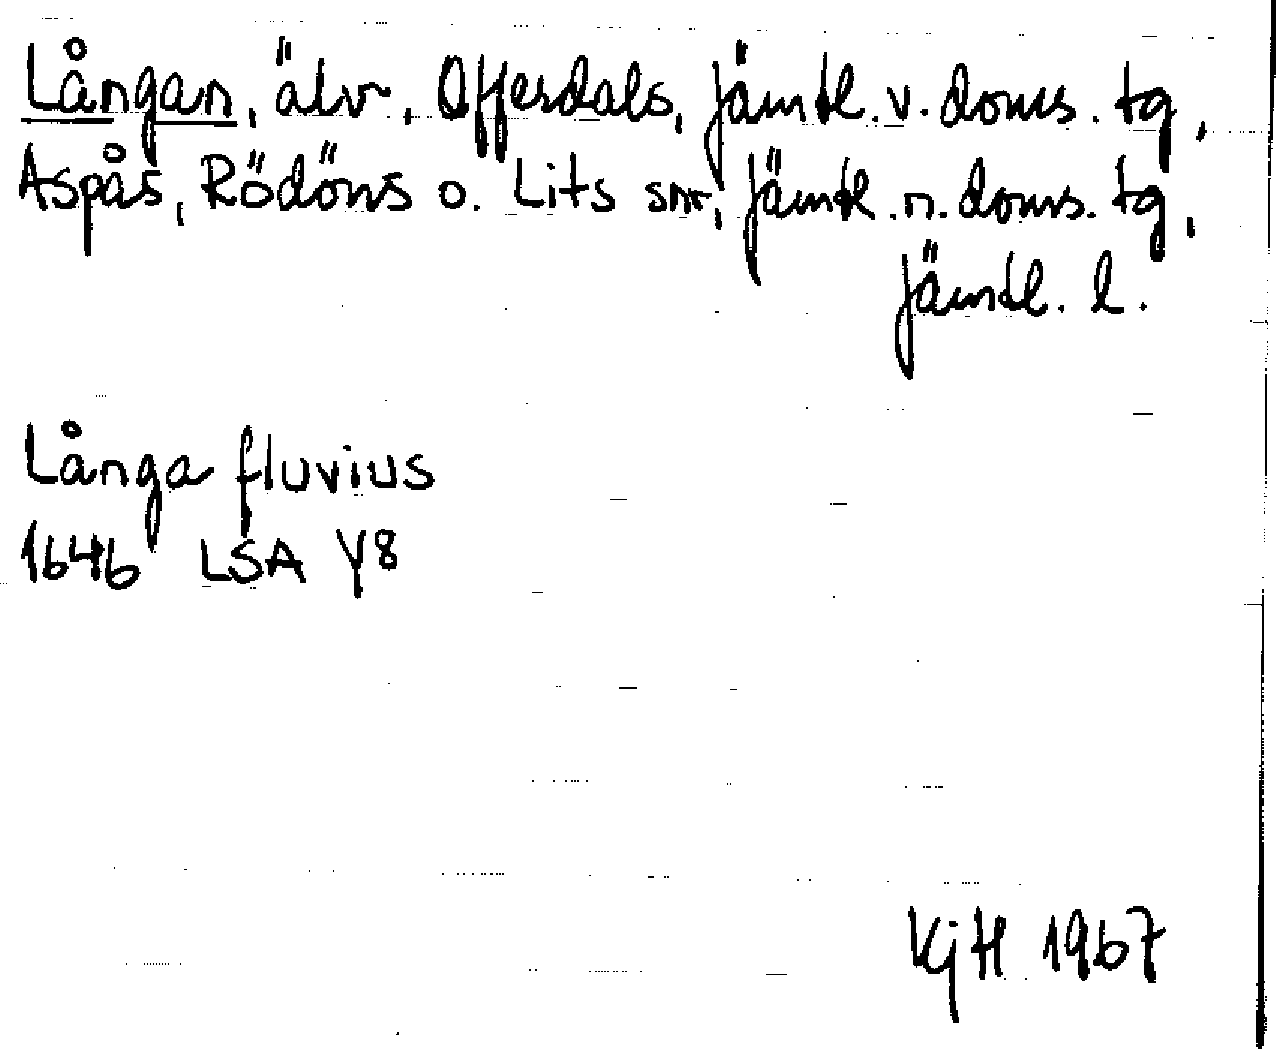 Långan, älv, Offerdals, Jämtl. v. doms. tg,
Aspås, Rödöns o. Lits snr, Jämtl. n. doms. tg,
Jämtl. l.
Långa fluvius
1646 LSA Y8
KjH 1967